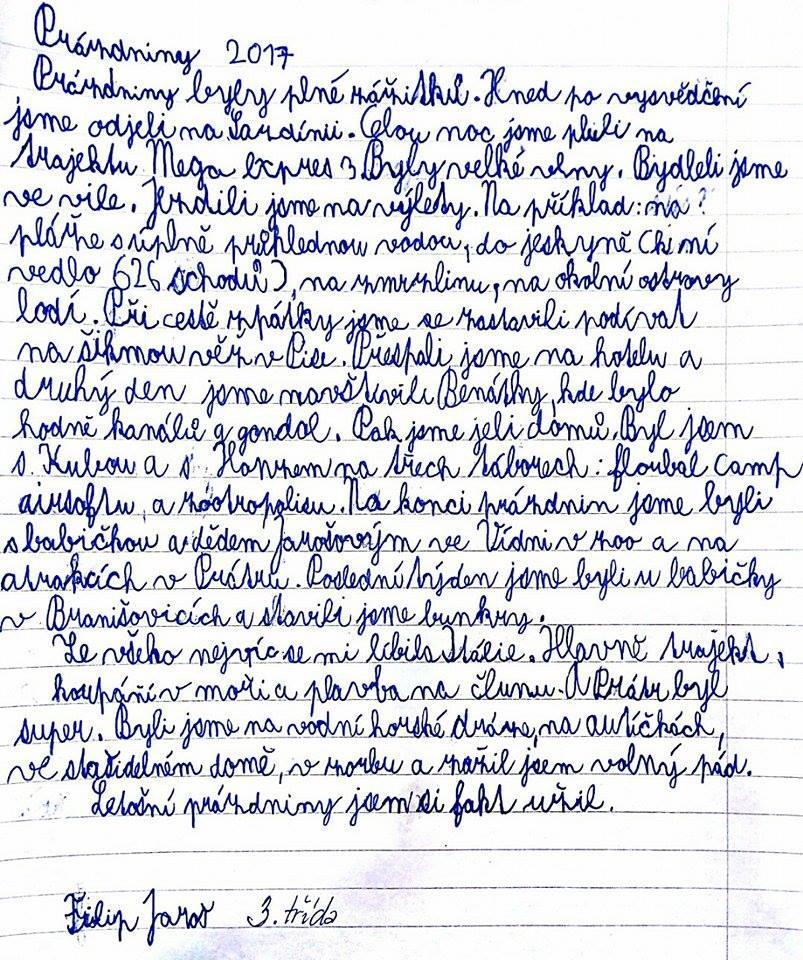 Prázdniny 2017
Prázdniny byly plné zážitků. Hned po vysvědčení
jsme odjeli na Sardínii. Celou noc jsme pluli na
trajektu Mega expres 3. Byly velké vlny. Bydleli jsme
ve vile. Jezdili jsme na výlety. Na příklad: na
pláže s úplně průhlednou vodou, do jeskyně (k ní
vedlo 626 schodů), na zmrzlinu, na okolní ostrovy
lodí. Při cestě zpátky jsme se zastavili podívat
na šikmou věž v Pise. Přespali jsme na hotelu a
druhý den jsme navštívili Benátky, kde bylo
hodně kanálů a gondol. Pak jsme jeli domů. Byl jsem
s Kubou a s Honzem na třech táborech: floubal camp
airsoftu, a zootropolisu. Na konci prázdnin jsme byli
s babičkou a dědem Jarošovým ve Vídni v zoo a na
atrakcích v Prátru. Poslední týden jsme byli u babičky
v Branišovicích a stavili jsme bunkry.
Ze všeho nejvíc se mi líbila Itálie. Hlavně trajekt,
koupání v moři a plavba na člunu. A Prátr byl
super. Byli jsme na vodní horské dráze, na autíčkách,
ve strašidelném domě, v zorbu a zažil jsem volný pád.
Letošní prázdniny jsem si fakt užil.
Filip Jaroš 3. třída